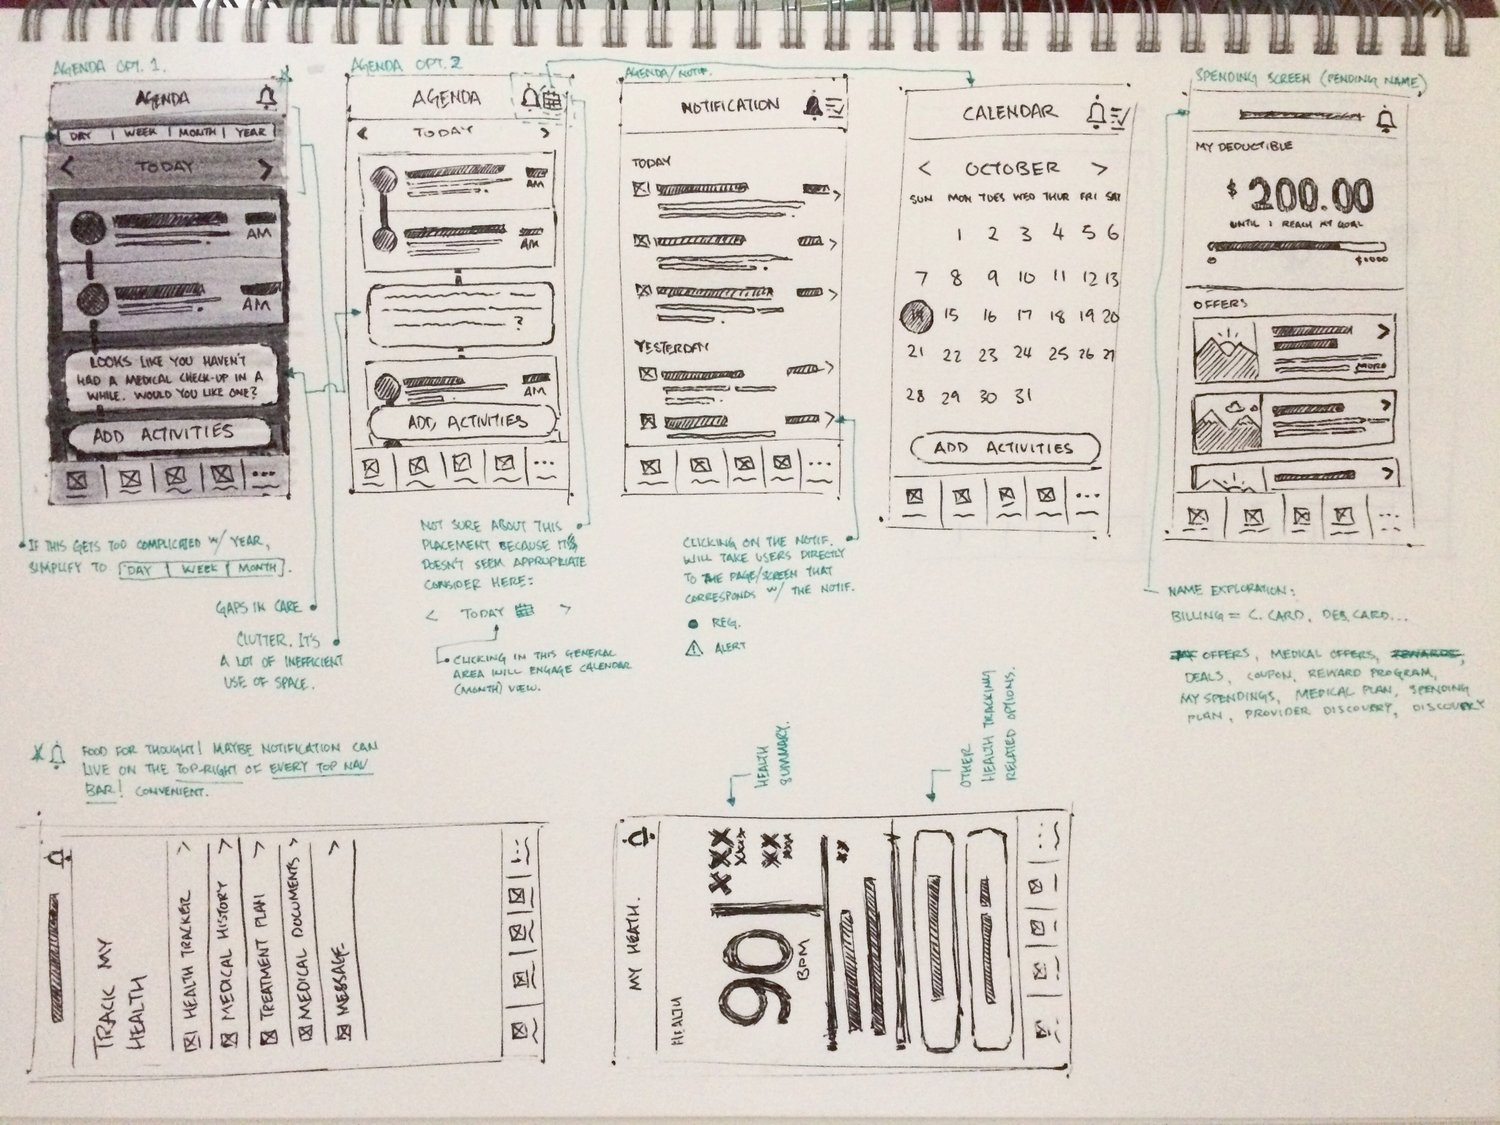 AGENDA OPT. 1.
AGENDA
DAY | WEEK | MONTH | YEAR
< TODAY >
AM
AM
LOOKS LIKE YOU HAVEN'T
HAD A MEDICAL CHECK-UP IN A
WHILE. WOULD YOU LIKE ONE?
ADD ACTIVITIES
...
AGENDA OPT. 2
AGENDA
< TODAY >
AM
AM
?
AM
ADD ACTIVITIES
...
AGENDA/NOTIF.
NOTIFICATION
TODAY
YESTERDAY
...
CALENDAR
< OCTOBER >
SUN MON TUES WED THUR FRI SAT
1 2 3 4 5 6
7 8 9 10 11 12 13
14 15 16 17 18 19 20
21 22 23 24 25 26 27
28 29 30 31
ADD ACTIVITIES
...
SPENDING SCREEN (PENDING NAME)
MY DEDUCTIBLE
$200.00
UNTIL I REACH MY GOAL
0 $1000
OFFERS
MORE
...
IF THIS GETS TOO COMPLICATED W/ YEAR,
SIMPLIFY TO DAY | WEEK | MONTH.
GAPS IN CARE
CLUTTER. IT'S
A LOT OF INEFFICIENT
USE OF SPACE.
NOT SURE ABOUT THIS
PLACEMENT BECAUSE IT
DOESN'T SEEM APPROPRIATE
CONSIDER HERE:
< TODAY >
CLICKING IN THIS GENERAL
AREA WILL ENGAGE CALENDAR
(MONTH) VIEW.
CLICKING ON THE NOTIF.
WILL TAKE USERS DIRECTLY
TO THE PAGE/SCREEN THAT
CORRESPONDS W/ THE NOTIF.
REG.
! ALERT
NAME EXPLORATION:
BILLING = C. CARD, DEB. CARD...
OFFERS, MEDICAL OFFERS, REWARDS,
DEALS, COUPON, REWARD PROGRAM,
MY SPENDINGS, MEDICAL PLAN, SPENDING
PLAN, PROVIDER DISCOVERY, DISCOVERY
FOOD FOR THOUGHT! MAYBE NOTIFICATION CAN
LIVE ON THE TOP-RIGHT OF EVERY TOP NAV
BAR! CONVENIENT.
TRACK MY
HEALTH
HEALTH TRACKER >
MEDICAL HISTORY >
TREATMENT PLAN >
MEDICAL DOCUMENTS >
MESSAGE >
...
HEALTH
SUMMARY.
OTHER
HEALTH TRACKING
RELATED OPTIONS.
MY HEATH.
HEALTH
90
BPM
XXX
XXXX
XX
XXX
XX
...